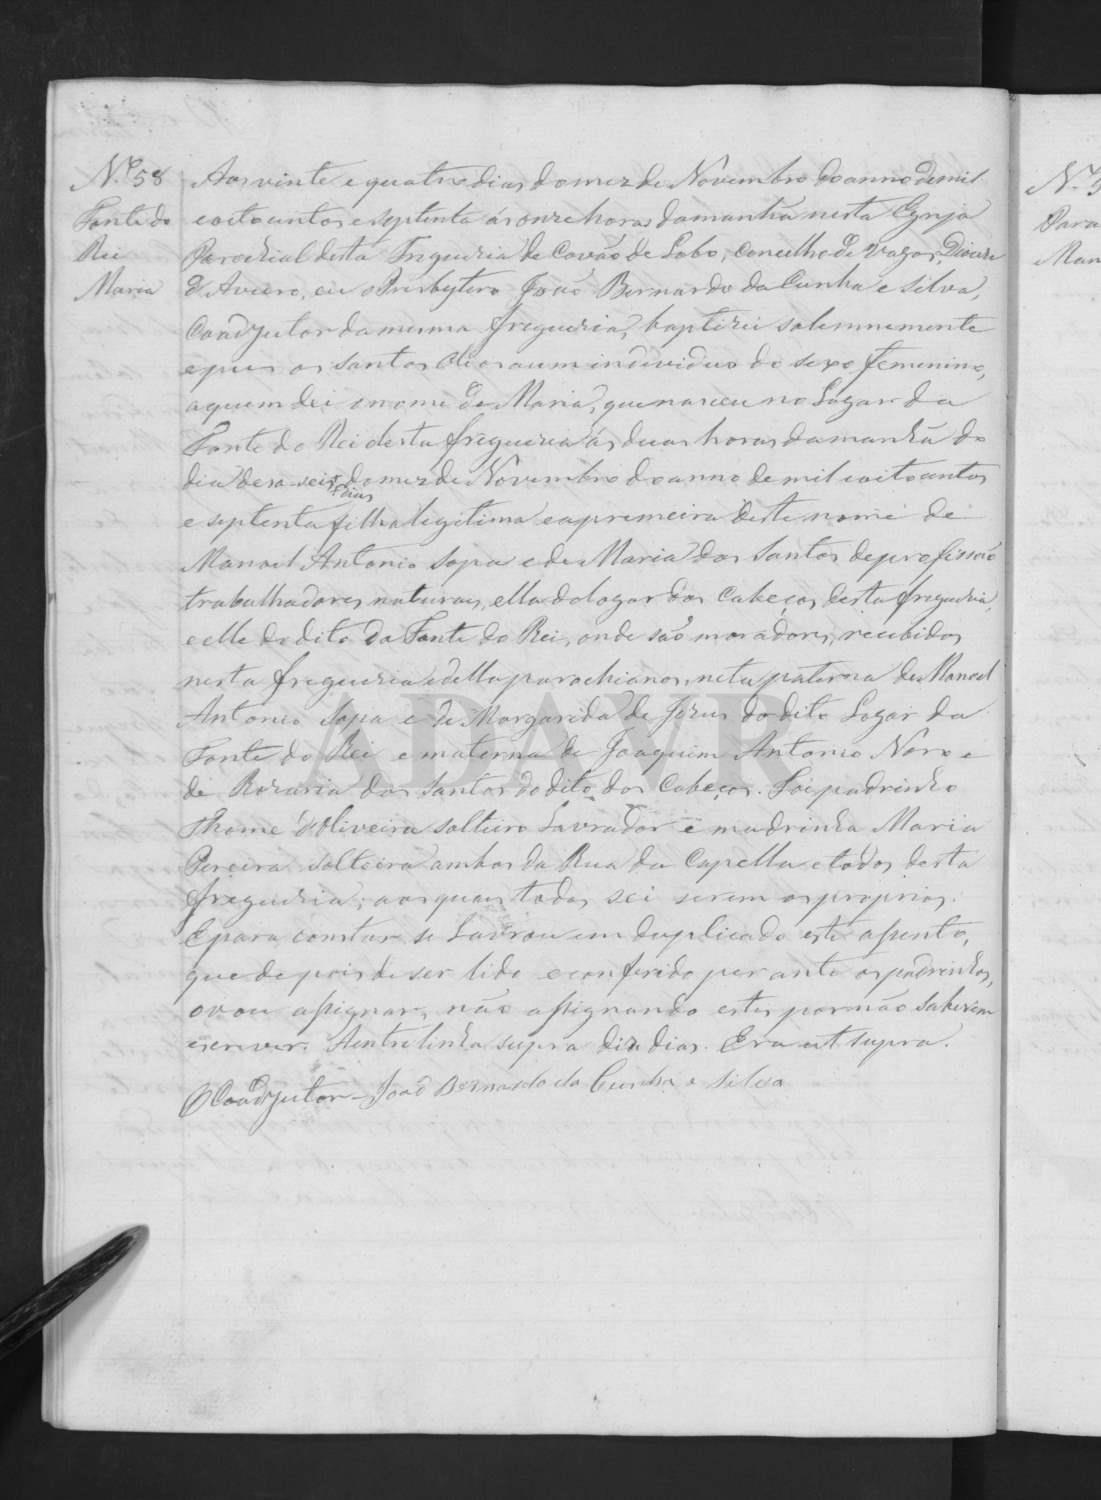 N.º 58
Fonte do
Rei
Maria
Aos vinte e quatro dias do mez de Novembro do anno de mil
eoitocentos e septenta ás onze horas da manhã nesta Egreja
Parochial desta Freguezia de Covão de Lobo, concelho de Vagos, Diocese
d'Aveiro, eu o Presbytero João Bernardo da Cunha e Silva,
Coadjutor da mesma freguezia, baptizei solemnemente
e puz os santos Oleos a um individuo do sexo femenino,
a quem dei o nome de Maria, que nasceu no Logar da
Fonte do Rei desta freguezia ás duas horas da manhã do
dia desa-seis do mez de Novembro do anno de mil eoitocentos
dias
e septenta filha legitima e a premeira deste nome de
Manoel Antonio Sopa e de Maria dos Santos de profissão
trabalhadores naturaes, ella do logar dos Cabeços desta freguezia,
e elle do dito da Fonte do Rei, onde são moradores, recebidos
nesta freguezia e della parochianos, neta paterna de Manoel
Antonio Sopa e de Margarida de Jezus do dito Logar da
Fonte do Rei e materna de Joaquim Antonio Novo e
de Rozaria dos Santos do dito dos Cabeços. Foi padrinho
Thomé d'Oliveira solteiro Lavrador e madrinha Maria
Pereira solteira ambos da Rua da Capella e todos desta
freguezia, aos quaes todos sei serem os proprios.
E para constar se Lavrou em duplicado este assento,
que depois de ser lido e conferido perante os padrinhos,
o vou assignar, não assignando estes por não saberem
escrever. A entrelinha supra diz dias. Era ut supra.
O Coadjutor - João Bernardo da Cunha e Silva
ADAVR
N.º 5
Para
Man